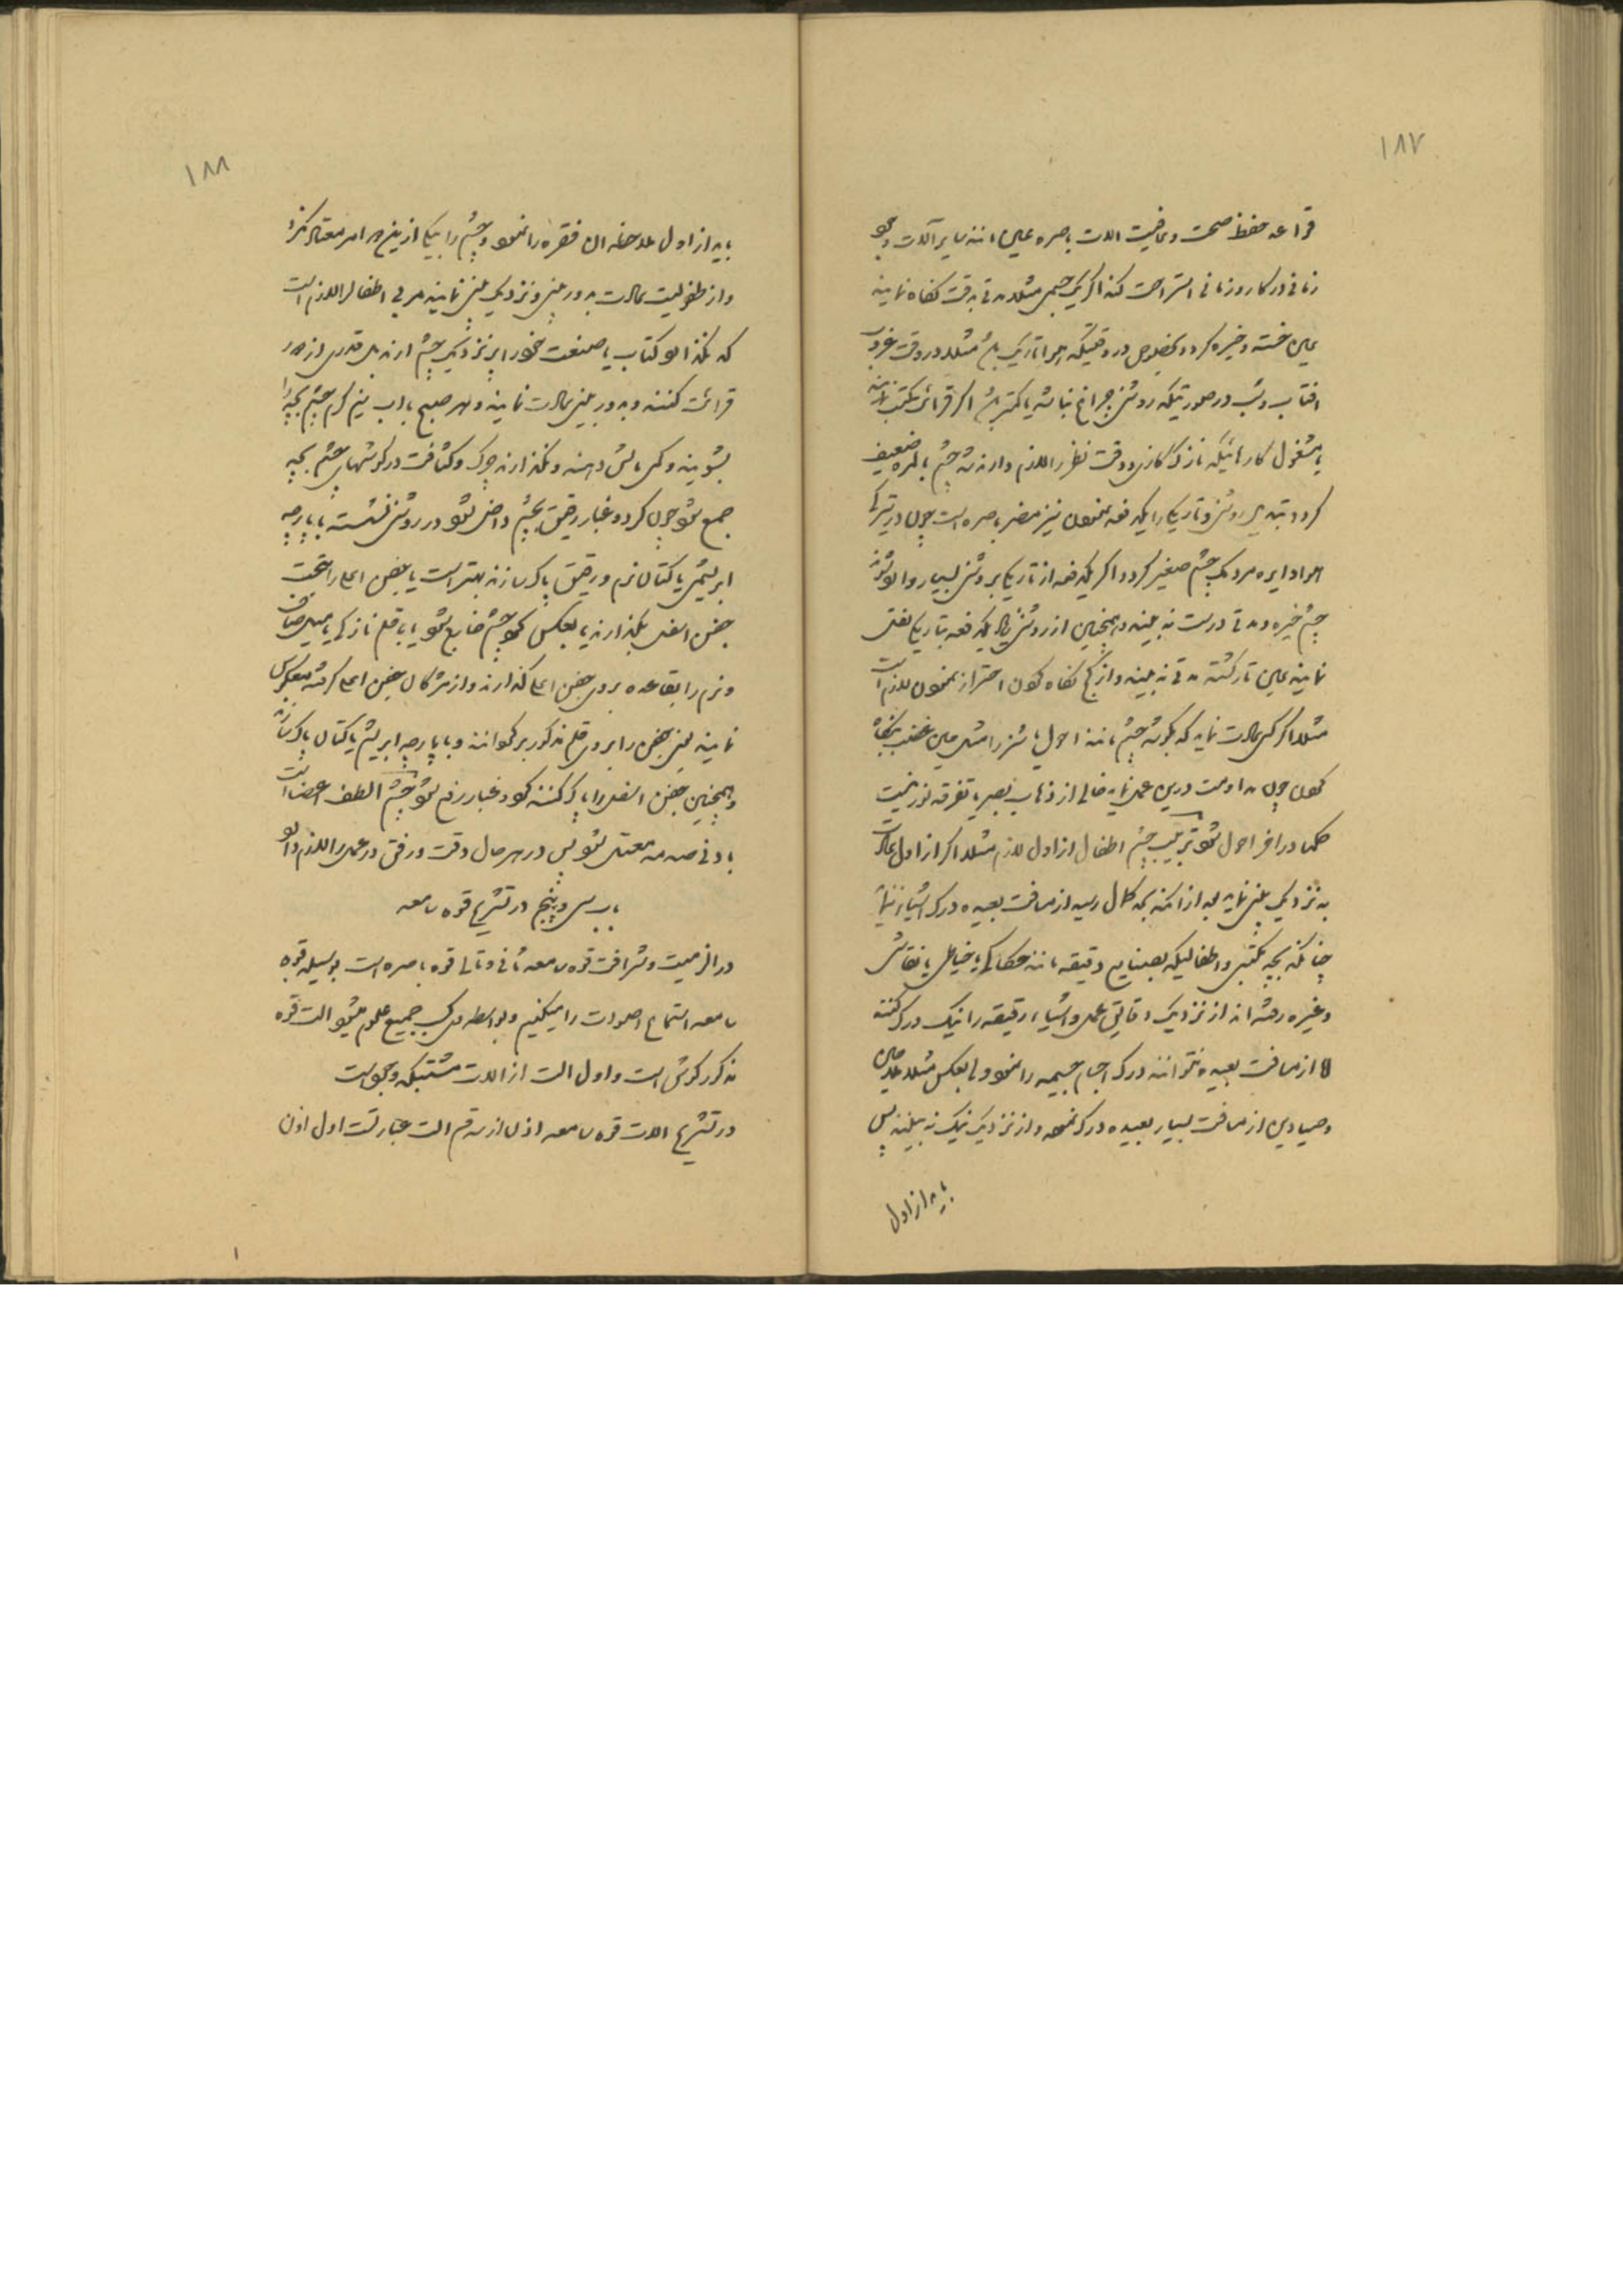 ۱۸۷
قواعد حفظ صحت و عافیت الات باصره عین مانند سایر آلات
زمانی در کار و زمانی استراحت کند اگر بیک جسمی مثلا مدتی بدقت نگاه نمایند
عین خسته و خیره گردد بخصوص در وقتیکه هوا تاریک باشد مثلا در وقت غروب
افتاب و شب در صورتیکه روشنی چراغ نباشد یا کمتر باشد اگر قرائت کتب نمایند
یا مشغول کارهائیکه نازک کاری و دقت نظر را لازم دارند شد چشم بالمره ضعیف
گردد تبدیل روشنی و تاریکی را یکدفعه نمودن نیز مضر باصره است چون در تیرگی
هوا دایره مردمک چشم صغیر گردد اگر یکدفعه از تاریکی بروشنی بسیار وارد شوند
چشم خیره و مدتی درست نه بیند و همچنین از روشنی زیاد یکدفعه بتاریکی نقل
نمایند عین تار گشته مدتی نه بیند و از کج نگاه کردن احتراز نمودن لازم است
مثلا اگر کسی عادت نماید که بگوشه چشم مانند احول یا شزرا مثل حین غضب نگاه
کردن چون مداومت درین عمل نماید خالی از ذهاب بصر یا تفرقه نور نیست
حکما در اخر احول شود تربیت چشم اطفال از اول لازم مثلا اگر از اول عادت
به نزدیک بینی نماید بعد از انکه بحد کمال رسید از مسافت بعیده درک اشیا ننماید
چنانکه بچه مکتبی و اطفالیکه بصنایع دقیقه مانند حکاکی یا خیاطی یا نقاشی
و غیره رفته اند از نزدیک دقایق عمل و اشیاء رقیقه را نیک درک کنند
اما از مسافت بعیده نتوانند درک اجسام جسیمه را نمود و بالعکس مثلا ملاحین
و صیادین از مسافت بسیار بعیده درک نموده و از نزدیک نیک نه بینند پس
باید از اول
۱۸۸
باید از اول ملاحظه این فقره را نمود و چشم را بیکی ازین دو امر معتاد نکرد
و از طفولیت عادت بدور بینی و نزدیک بینی نمایند مربی اطفال را لازم است
که نگذارد کتاب یا صنعت خود را بنزدیک چشم ارند بل قدری از دور
قرائت کنند و بدور بینی عادت نمایند و هر صبح با اب نیم گرم چشم بچه را
بشویند و کمی مالش دهند و نگذارند چرک و کثافت در گوشهای چشم بچه
جمع شود چون گرد و غبار رقیق بچشم داخل شود در روشنی نشسته با پارچه
ابریشمی یا کتان نرم و رقیق پاک سازند بهتر است یا بجفن اعلی را بتحت
جفن اسفل بگذارند یا بالعکس گرد چشم خارج شود یا با قلم نازکی یا میل صاف
و نرم را بقاعده بروی جفن اعلی گذارند و از مژگان جفن اعلی گرفته معکوس
نمایند یعنی جفن را بروی قلم مذکور برگردانند و با پارچه ابریشم یا کتان پاک سازند
و همچنین جفن اسفل را پاک کنند گرد و غبار رفع شود چشم الطف اعضا است
بادنی صدمه معتل شود پس در هر حال دقت و رفق در عمل را لازم دارد
باب سی و پنجم در تشریح قوه سامعه
در اهمیت و شرافت قوه سامعه ثانی و تالی قوه باصره است بوسیله قوه
سامعه استماع اصوات را میکنیم و بواسطه درک جمیع علوم میشود الت قوه
مذکور گوش است و اول الت از الات مشتبکه و مجوفست
در تشریح الات قوه سامعه اذن از سه قسم الت عبارتست اول اذن